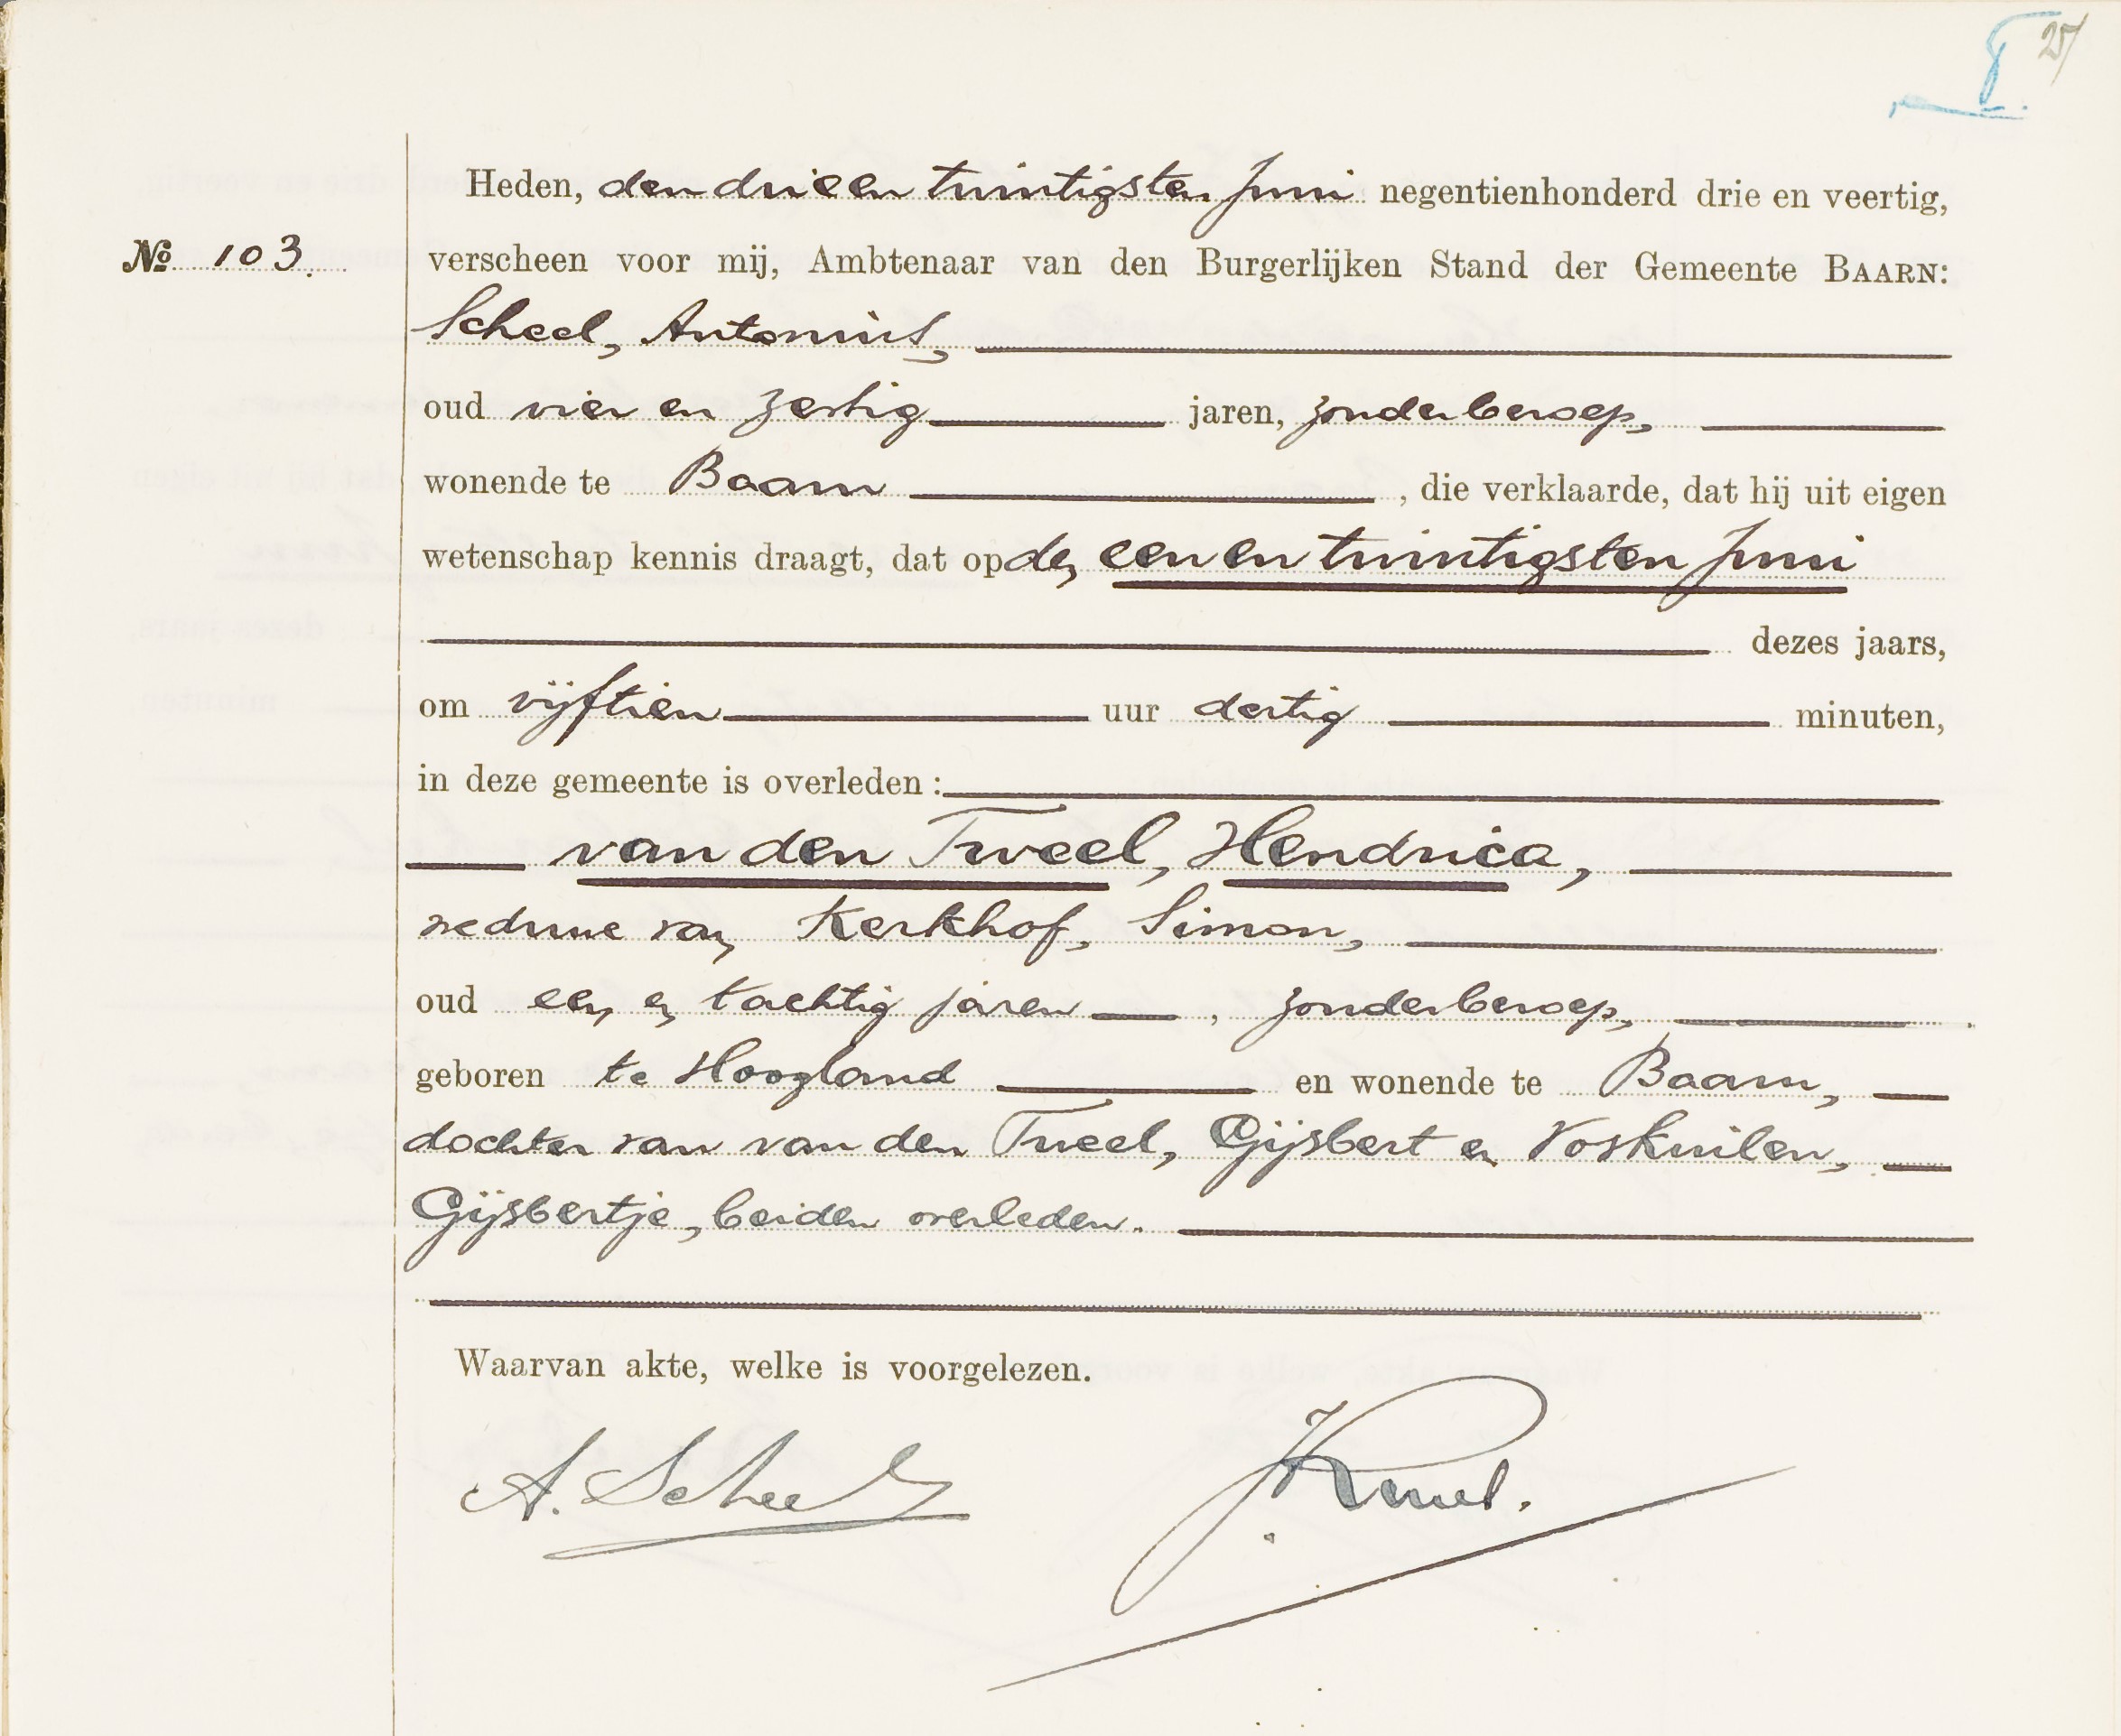 27
Heden, den drie en twintigsten Juni negentienhonderd drie en veertig,
No 103.
verscheen voor mij, Ambtenaar van den Burgerlijken Stand der Gemeente BAARN:
Scheel, Antonius,
oud vier en zestig jaren, zonder beroep,
wonende te Baarn, die verklaarde, dat hij uit eigen
wetenschap kennis draagt, dat op den een en twintigsten Juni
dezes jaars,
om vijftien uur dertig minuten,
in deze gemeente is overleden:
van den Tweel, Hendrica,
weduwe van Kerkhof, Simon,
oud een en tachtig jaren, zonder beroep,
geboren te Hoogland en wonende te Baarn,
dochter van van den Tweel, Gijsbert en Voskuilen,
Gijsbertje, beiden overleden.
Waarvan akte, welke is voorgelezen.
A. Scheel